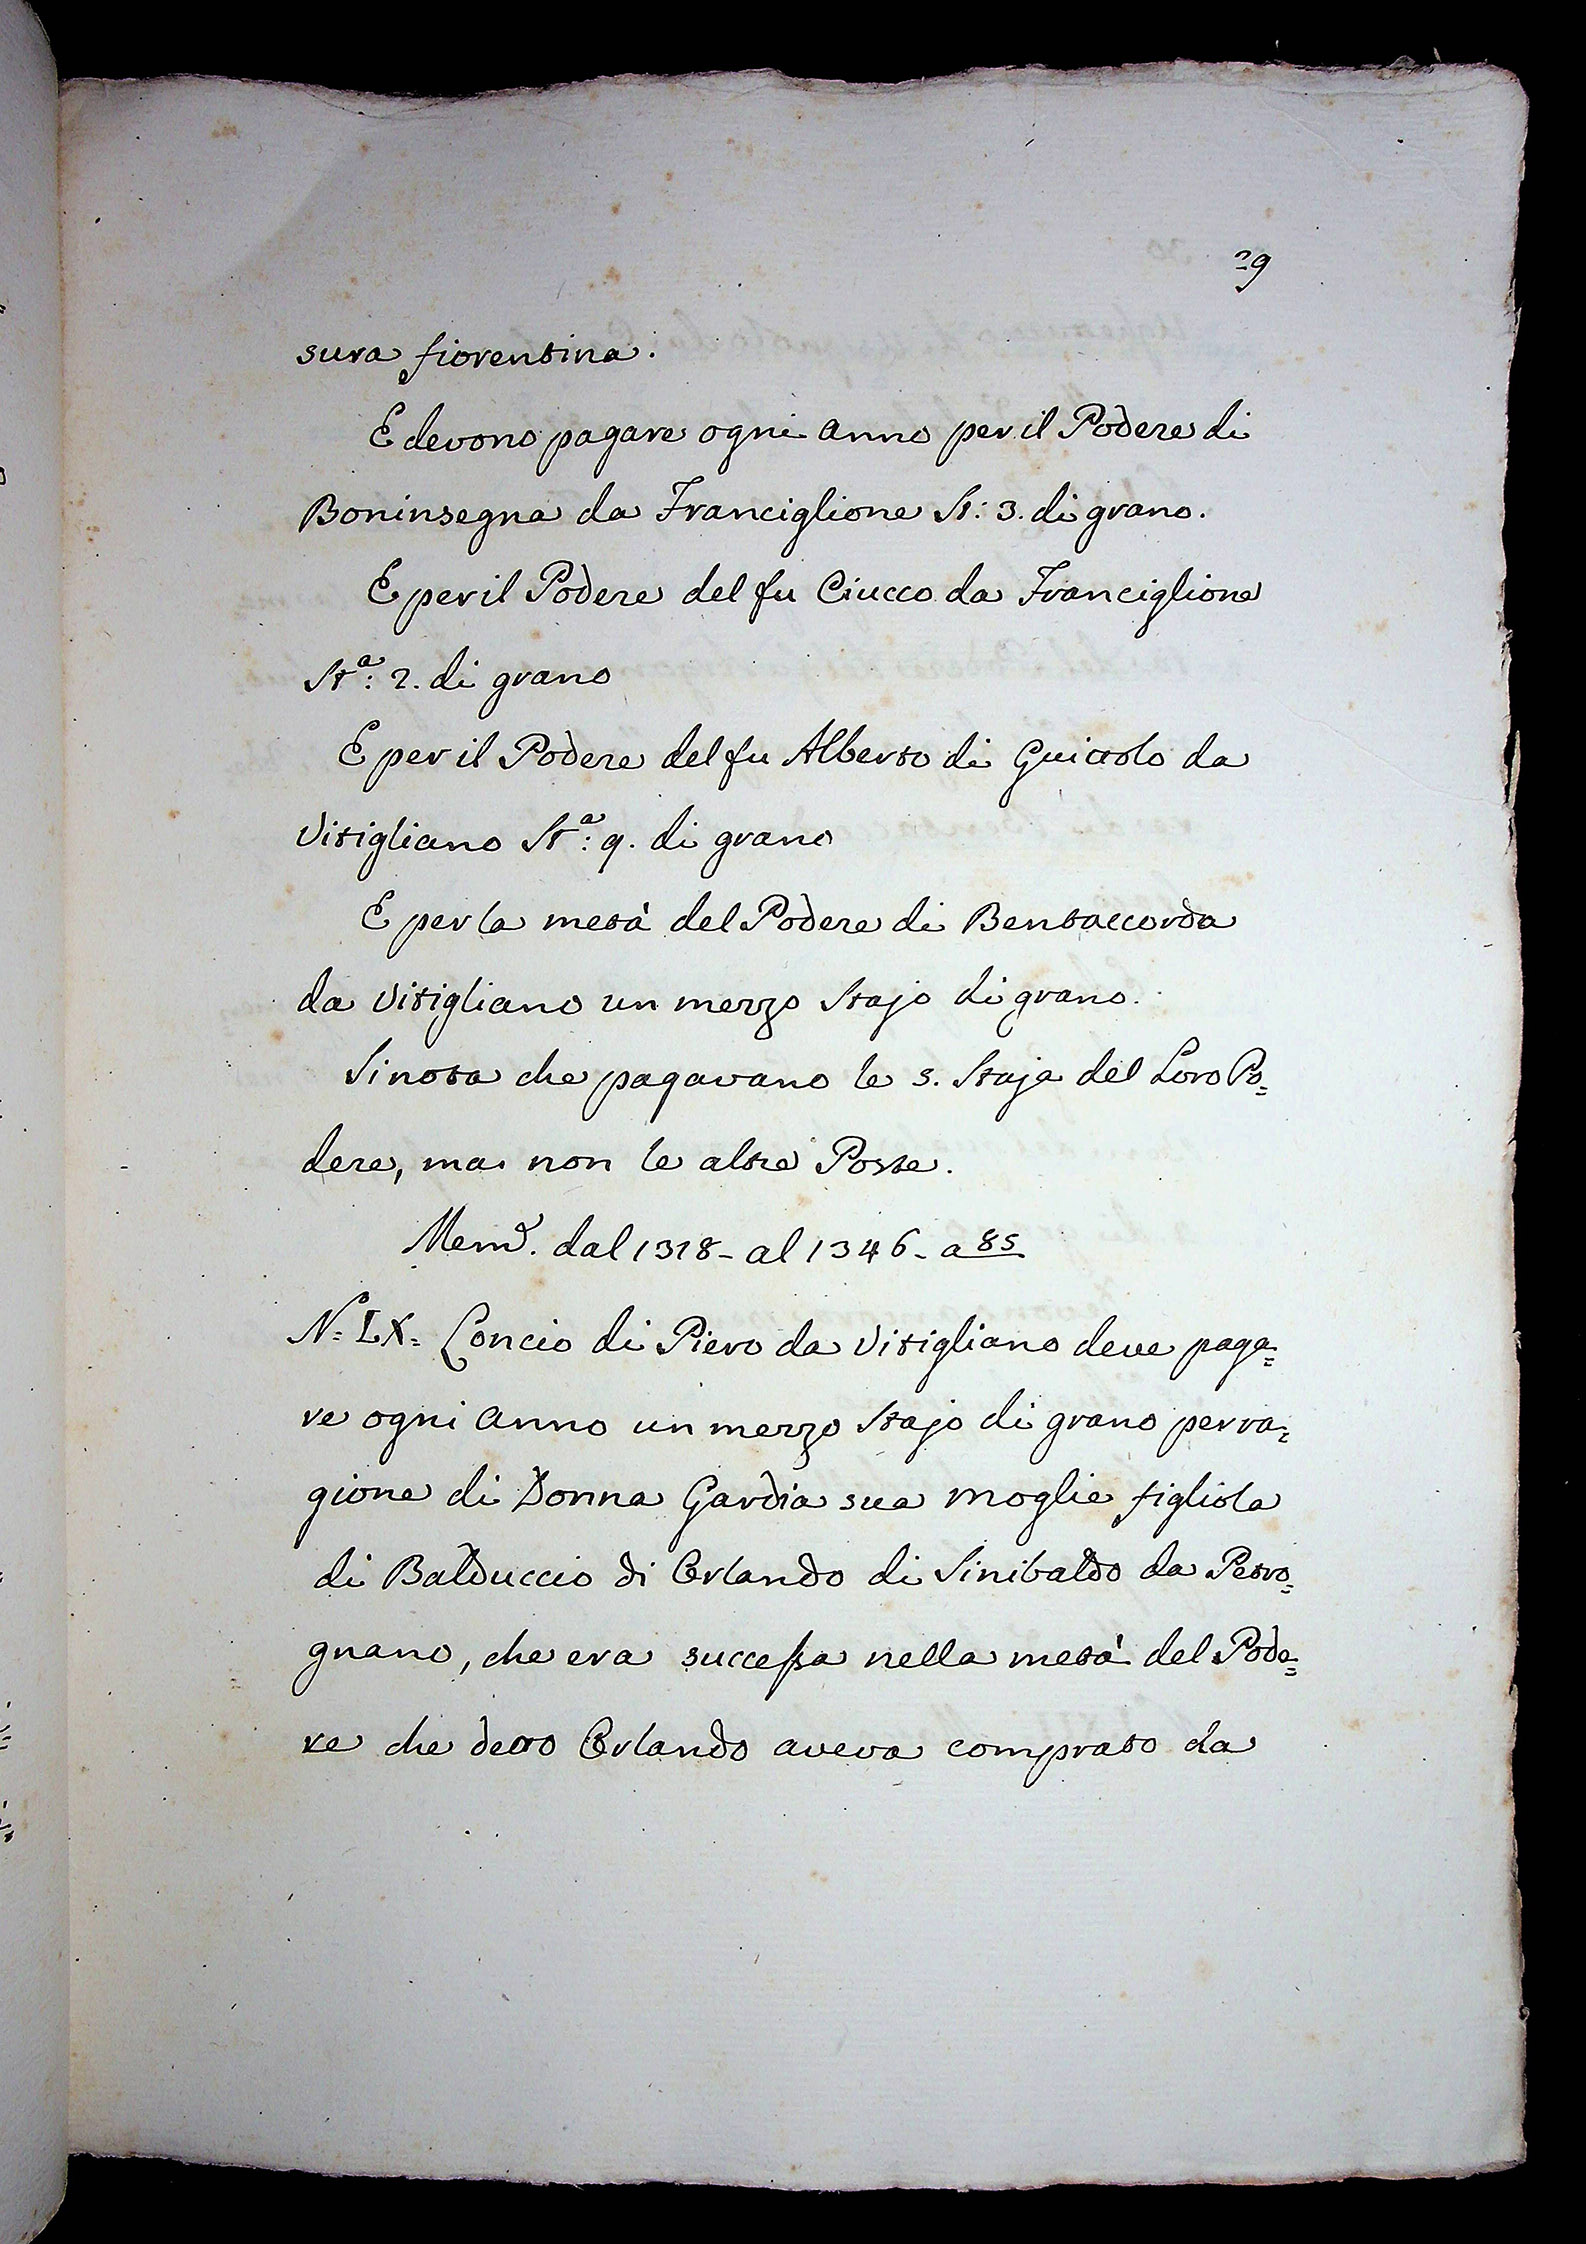 29
sura fiorentina.
E devono pagare ogni anno per il Podere di
Boninsegna da Franciglione St: 3. di grano.
E per il Podere del fu Ciucco da Franciglione
St.ª: 2. di grano
E per il Podere del fu Alberto di Guittolo da
Vitigliano St.ª: 9. di grano
E per la metà del Podere di Bentaccorda
da Vitigliano un mezzo Stajo di grano.
Si nota che pagavano le 5. Staja del Loro Po=
dere, ma non le altre Poste.
Mem.ᵉ dal 1318 - al 1346 - a 85
N.º LX= Concio di Piero da Vitigliano deve paga=
re ogni anno un mezzo Stajo di grano per ra=
gione di Donna Gardia sua moglie figliola
di Balduccio di Orlando di Sinibaldo da Petro=
gnano, che era successa nella metà del Pode=
re che detto Orlando aveva comprato da